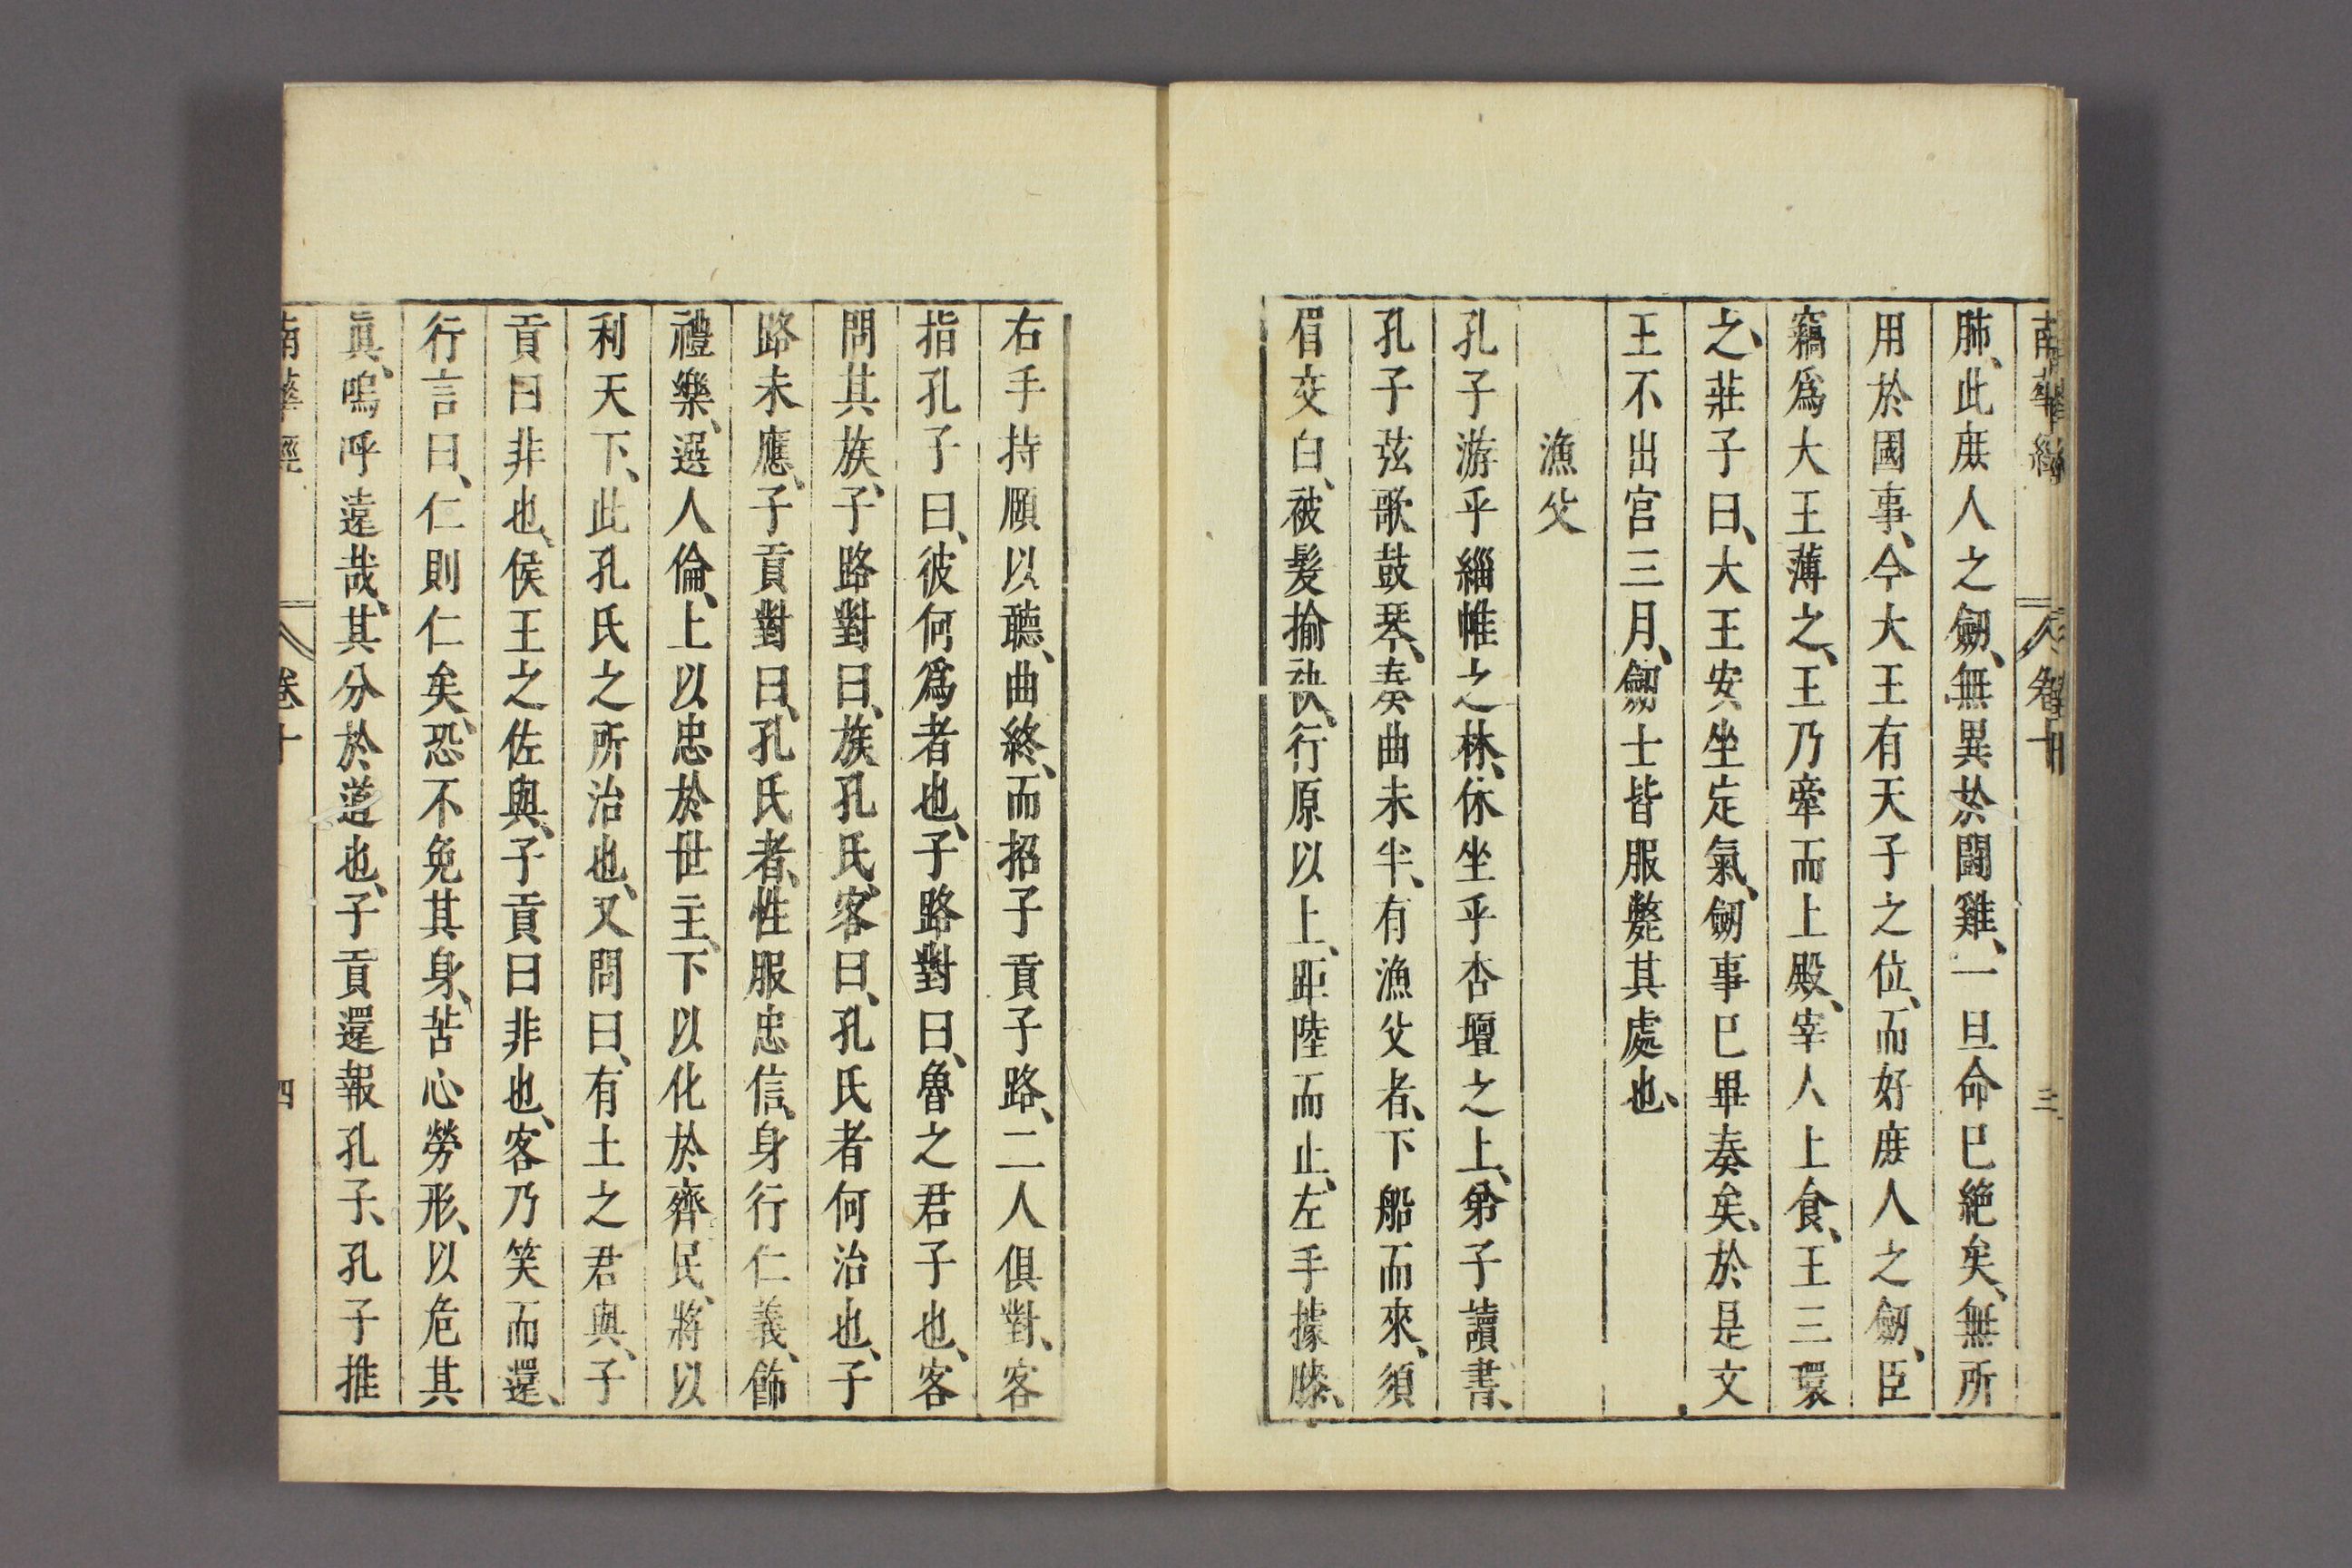 南華經 卷十 三
肺、此庶人之劒、無異於鬪雞、一旦命已絕矣、無所
用於國事、今大王有天子之位、而好庶人之劒、臣
竊爲大王薄之、王乃牽而上殿、宰人上食、王三環
之、莊子曰、大王安坐定氣、劒事已畢奏矣、於是文
王不出宮三月、劒士皆服斃其處也、
漁父
孔子游乎緇帷之林、休坐乎杏壇之上、弟子讀書、
孔子弦歌鼓琴、奏曲未半、有漁父者、下船而來、須
眉交白、被髮揄袂、行原以上、距陸而止、左手據膝、
右手持頤以聽、曲終、而招子貢子路、二人俱對、客
指孔子曰、彼何爲者也、子路對曰、魯之君子也、客
問其族、子路對曰、族孔氏、客曰、孔氏者何治也、子
路未應、子貢對曰、孔氏者、性服忠信、身行仁義、飾
禮樂、選人倫、上以忠於世主、下以化於齊民、將以
利天下、此孔氏之所治也、又問曰、有土之君與、子
貢曰非也、侯王之佐與、子貢曰非也、客乃笑而還、
行言曰、仁則仁矣、恐不免其身、苦心勞形、以危其
眞、嗚呼遠哉、其分於道也、子貢還報孔子、孔子推
南華經 卷十 四